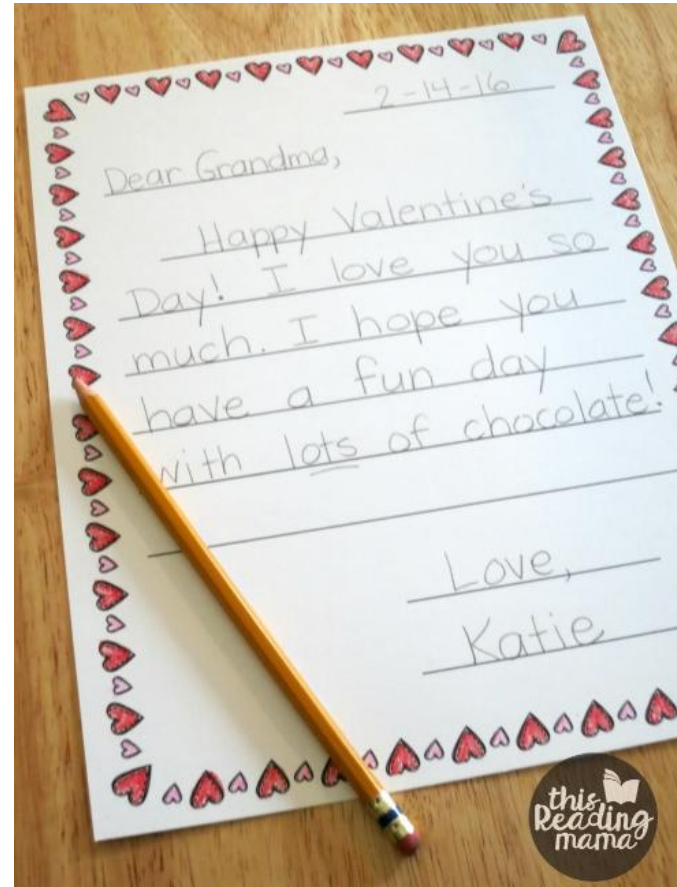 2-14-16
Dear Grandma,
Happy Valentine's
Day! I love you so
much. I hope you
have a fun day
with lots of chocolate!
Love,
Katie
this
Reading
mama